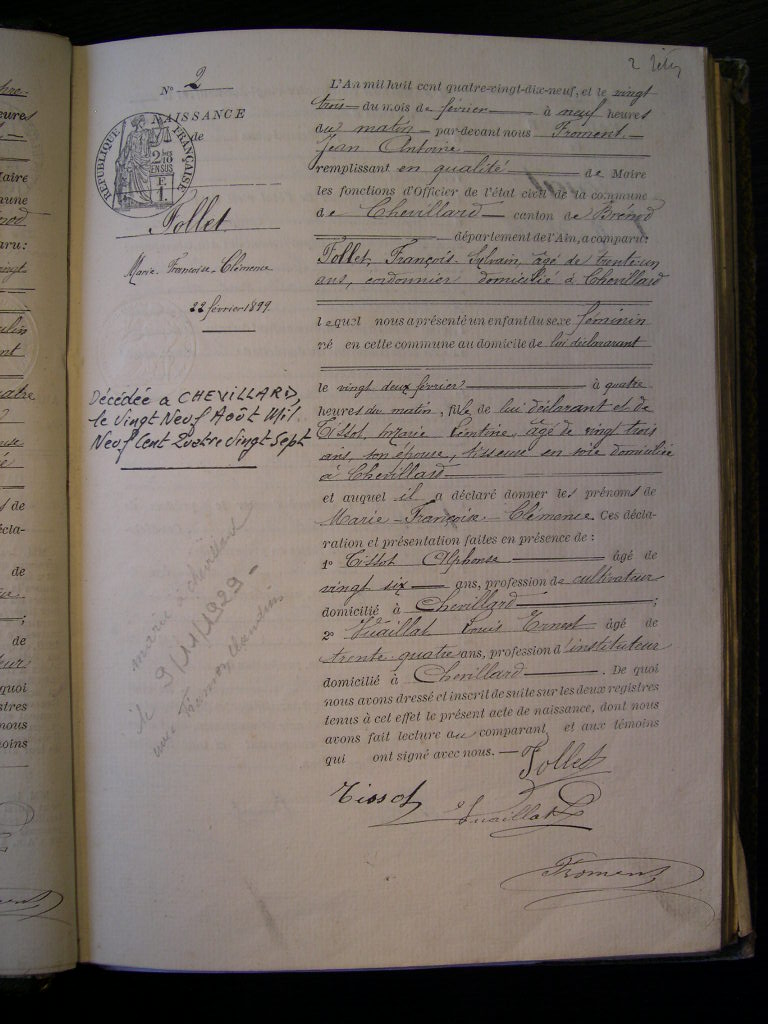 N° 2
NAISSANCE
de
RÉPUBLIQUE FRANÇAISE
Follet
Marie-Françoise-Clémence
22 février 1899.
Décédée à CHEVILLARD,
le Vingt Neuf Août Mil
Neuf Cent Quatre Vingt Sept
marié à Chevillard
le 9/11/1929 -
avec
2
L'An mil huit cent quatre-vingt-dix-neuf, et le vingt
trois du mois de février à neuf heures
du matin par-devant nous Froment
Jean Antoine
remplissant en qualité de Maire
les fonctions d'Officier de l'état civil de la commune
de Chevillard canton de Brénod
département de l'Ain, a comparu:
Follet, François Sylvain, âgé de trente un
ans, cordonnier domicilié à Chevillard
lequel nous a présenté un enfant du sexe féminin
né en cette commune au domicile de lui déclarant
le vingt deux février à quatre
heures du matin, fille de lui déclarant et de
Tissot, Marie Léontine, âgé de vingt trois
ans, son épouse, tisseuse en soie domiciliée
à Chevillard
et auquel il a déclaré donner les prénoms de
Marie-Françoise-Clémence. Ces décla-
ration et présentation faites en présence de :
1° Tissot Alphonse âgé de
vingt six ans, profession de cultivateur
domicilié à Chevillard ;
2° Vuaillat Louis Ernest âgé de
trente quatre ans, profession d'instituteur
domicilié à Chevillard. De quoi
nous avons dressé et inscrit de suite sur les deux registres
tenus à cet effet le présent acte de naissance, dont nous
avons fait lecture au comparant et aux témoins
qui ont signé avec nous. — Follet
Tissot
Vuaillat
Froment